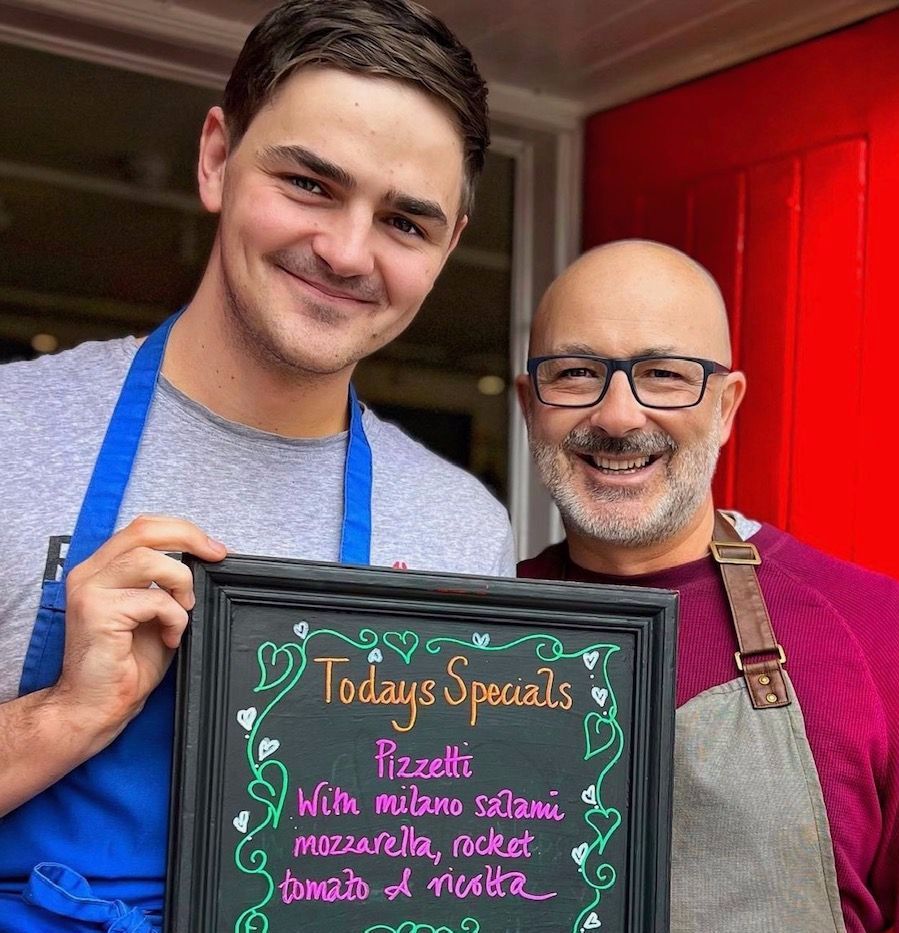 Todays Specials
Pizzetti
With milano salami
mozzarella, rocket
tomato & ricotta